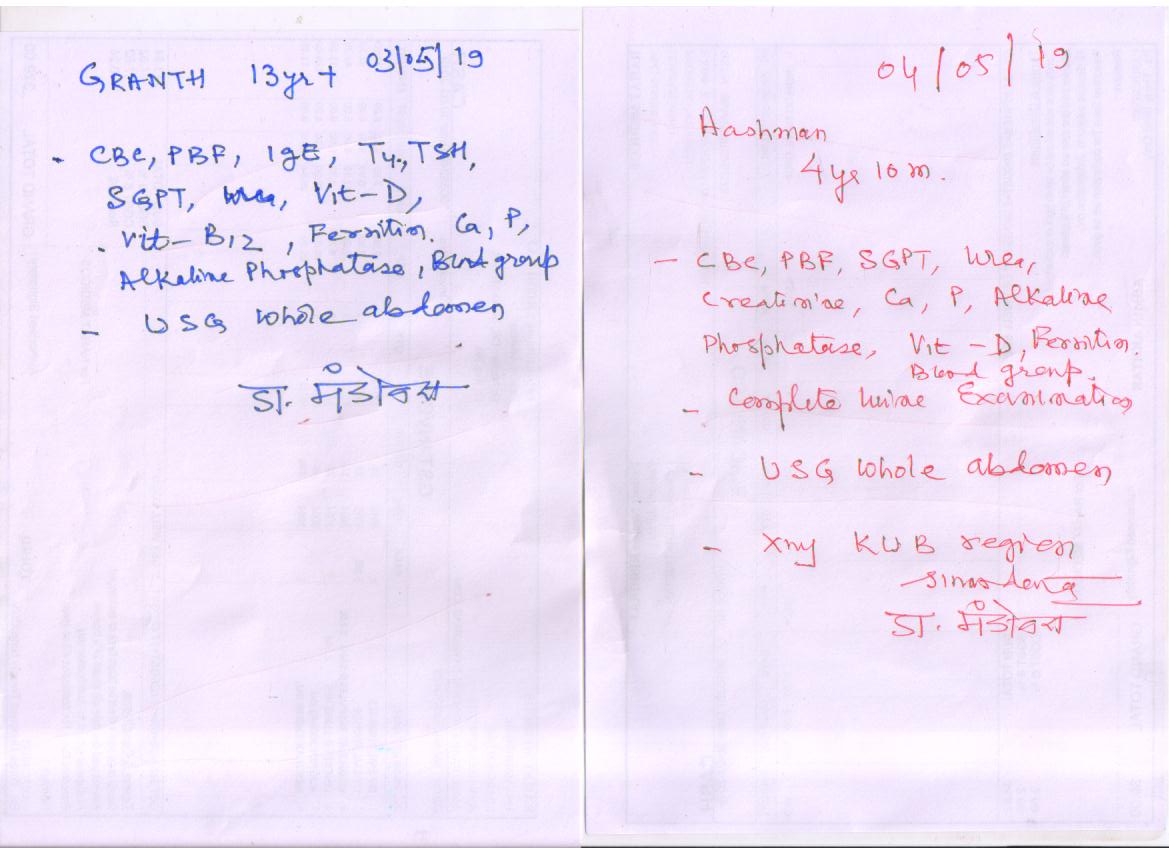 GRANTH 13yr+ 03/05/19
- CBC, PBF, IgE, T4, TSH,
SGPT, Urea, Vit-D,
. Vit-B12, Ferritin. Ca, P,
Alkaline Phosphatase, Blood group
- USG whole abdomen
डा.
04/05/19
Aashman
4yr 10m.
- CBC, PBF, SGPT, Urea,
Creatinine, Ca, P, Alkaline
Phosphatase, Vit-D, Ferritin
Blood group.
- Complete Urine Examination
- USG whole abdomen
- Xray KUB region
डा.